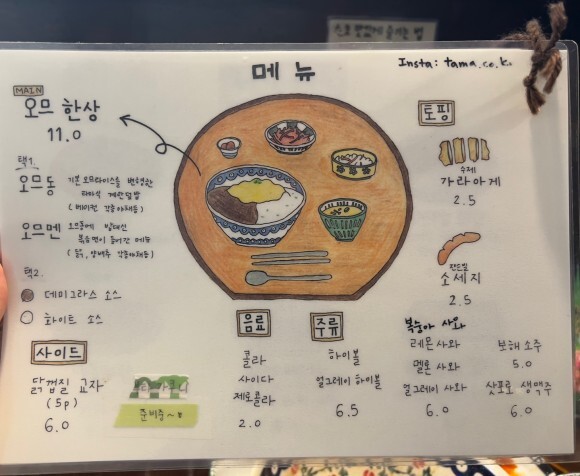 메뉴
Insta: tama.co.k
MAIN
오므 한상
11.0
택1.
오므동
기본 오므라이스를 변형한
타마식 계란덮밥
(베이컨 각종야채등)
오므멘
오므동에 밥대신
볶음면이 들어간 메뉴
(닭, 양배추 각종야채등)
택2.
데미그라스 소스
화이트 소스
사이드
닭껍질 교자
(5p)
6.0
준비중~
음료
콜라
사이다
제로콜라
2.0
주류
하이볼
얼그레이 하이볼
6.5
복숭아 사와
레몬 사와
멜론 사와
얼그레이 사와
6.0
보해 소주
5.0
삿포로 생맥주
6.0
토핑
수제
가라아게
2.5
소세지
2.5